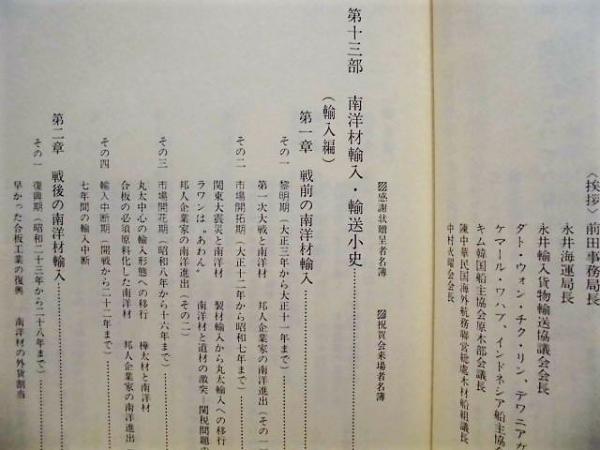 〈挨拶〉前田事務局長
永井海運局長
永井輸入貨物輸送協議会会長
ダト・ウォン・チク・リン、デワニアケ
ケマール・ワハブ、インドネシア船主協会
キム韓国船主協会原木部会議長
陳中華民国海外航務聯営総處木材船組議長
中村火曜会会長
▨感謝状贈呈者名簿 ▨祝賀会来場者名簿
第十三部 南洋材輸入・輸送小史
(輸入編)
第一章 戦前の南洋材輸入
その一 黎明期(大正三年から大正十一年まで)
第一次大戦と南洋材 邦人企業家の南洋進出(その一
その二 市場開拓期(大正十二年から昭和七年まで)
関東大震災と南洋材 製材輸入から丸太輸入への移行
ラワンは〝あわん〟 南洋材と道材の激突―関税問題
邦人企業家の南洋進出(その二)
その三 市場開花期(昭和八年から十六年まで)
丸太中心の輸入形態への移行 樺太材と南洋材
合板の必須原料化した南洋材 邦人企業家の南洋進出
その四 輸入中断期(開戦から二十二年まで)
七年間の輸入中断
第二章 戦後の南洋材輸入
その一 復興期(昭和二十三年から二十八年まで)
早かった合板工業の復興 南洋材の外貨割当